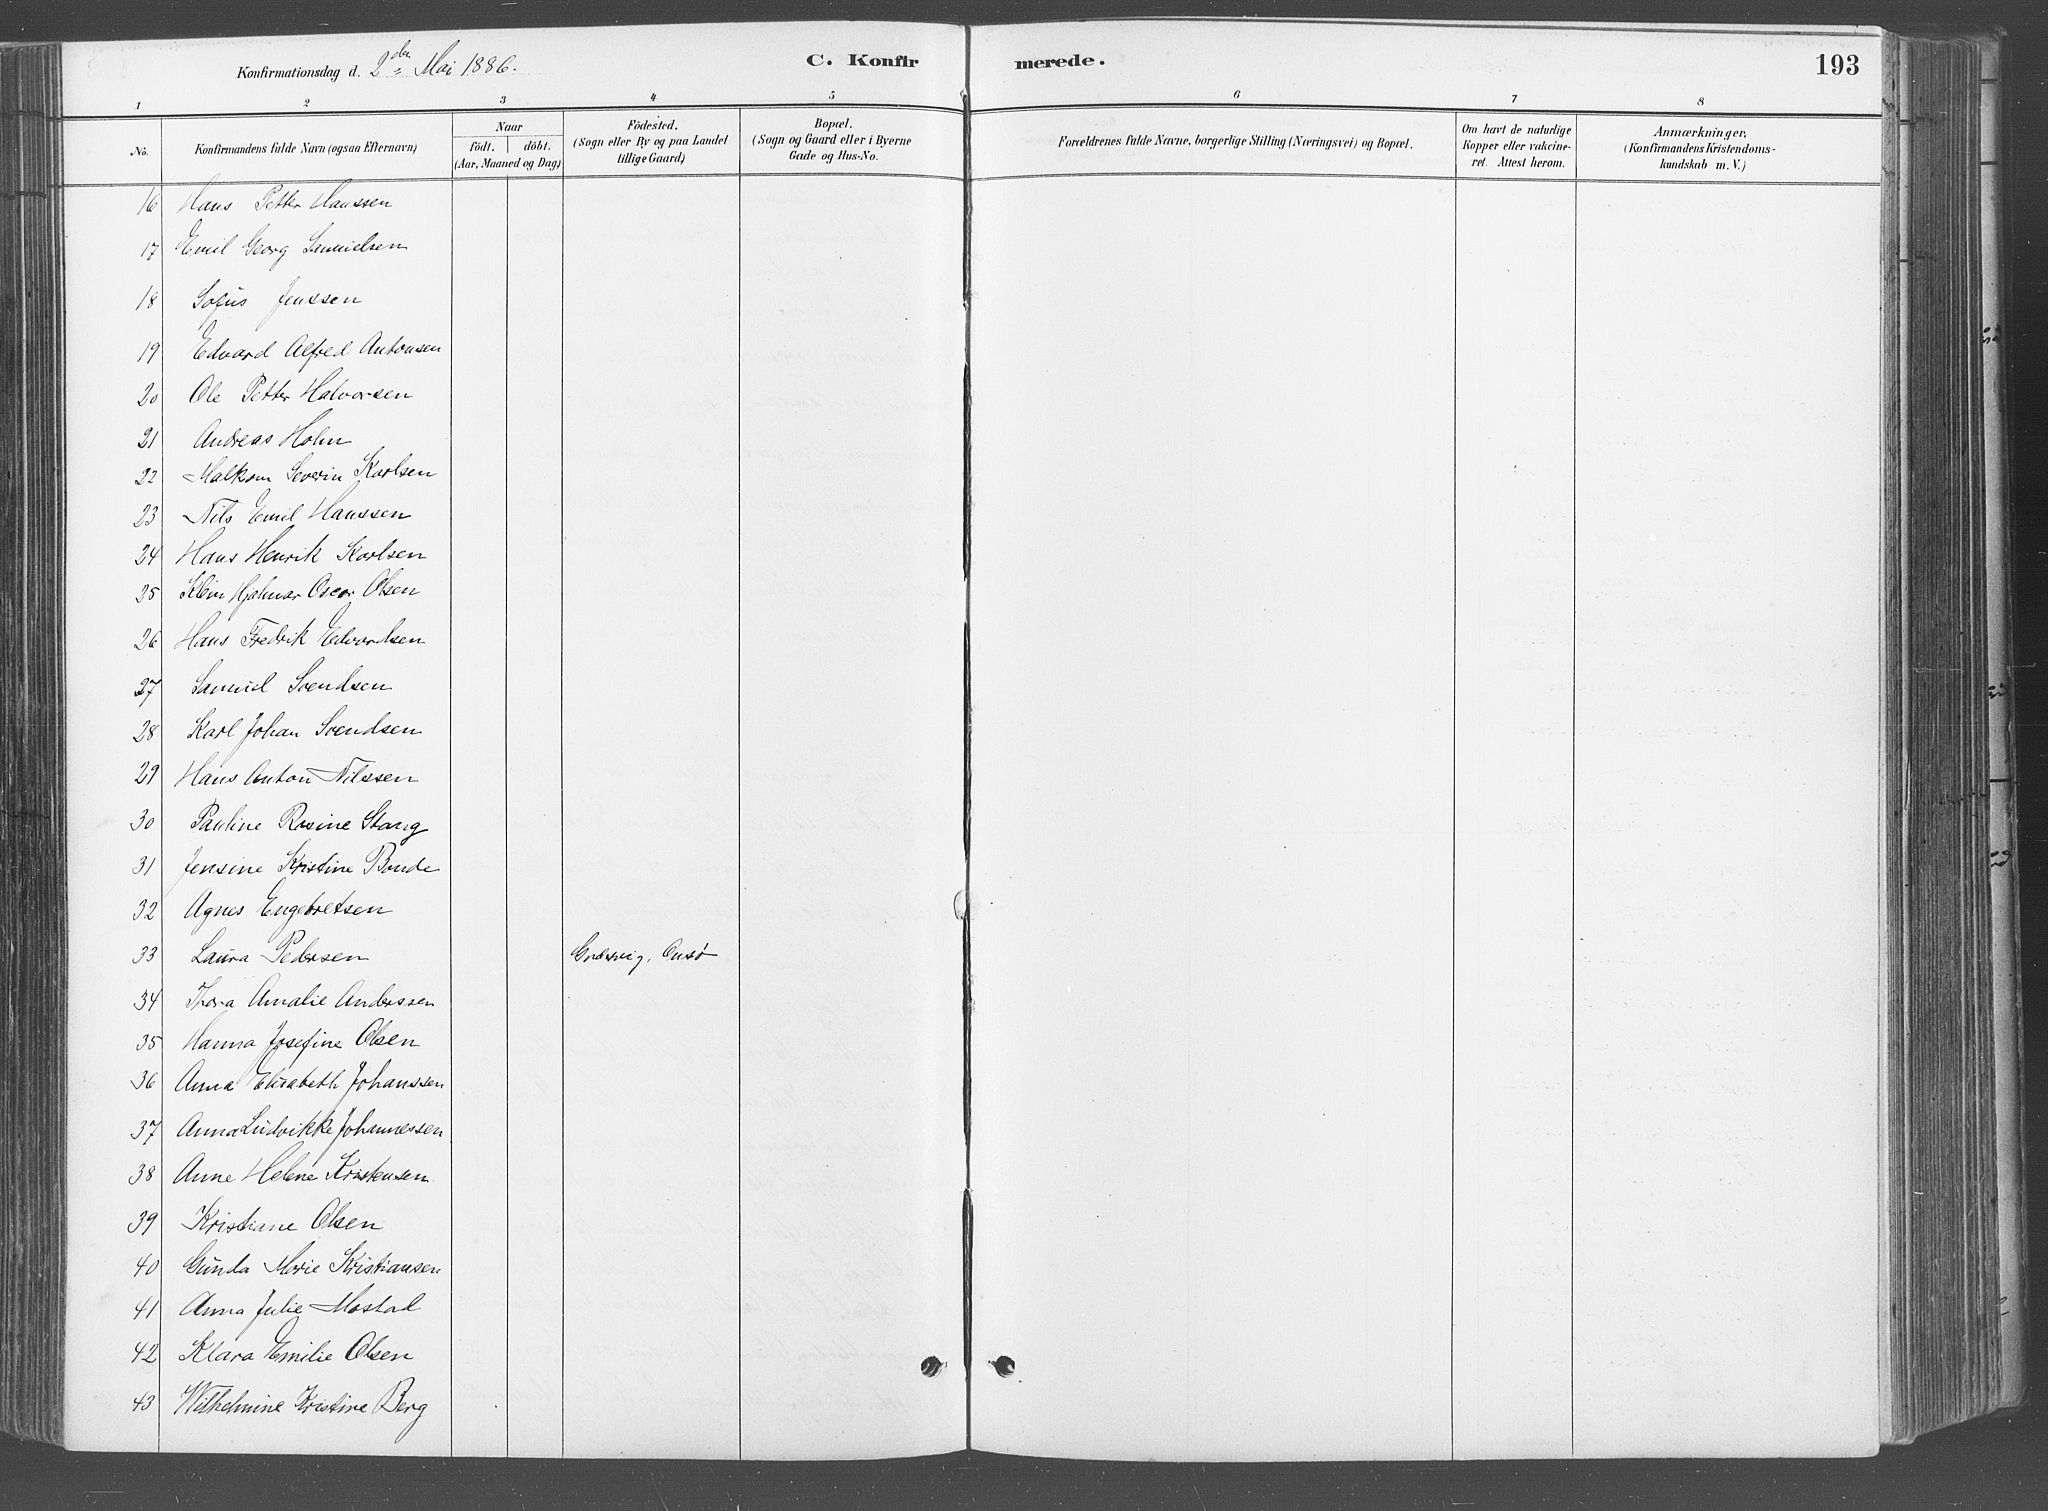 Konfirmationsdag d. 2den Mai 1886.
C. Konfirmerede.
193
1 2 3 4 5 6 7 8
No.
Konfirmandens fulde Navn (ogsaa Efternavn)
Naar
födt. döbt.
(Aar, Maaned og Dag)
Födested.
(Sogn eller By og paa Landet
tillige Gaard)
Bopæl.
(Sogn og Gaard eller i Byerne
Gade og Hus-No.
Forældrenes fulde Navne, borgerlige Stilling (Næringsvei) og Bopæl.
Om havt de naturlige
Kopper eller vakcine-
ret. Attest herom.
Anmærkninger.
(Konfirmandens Kristendoms-
kundskab m. V.)
16 Hans Petter Hanssen
17 Emil Georg Samuelsen
18 Sofus Jenssen
19 Edvard Alfred Antonsen
20 Ole Petter Halvorsen
21 Andreas Holm
22 Malkom Severin Karlsen
23 Nils Emil Hanssen
24 Hans Henrik Karlsen
25 Hjalmar Oscar Olsen
26 Hans Fredrik Edvardsen
27 Samuel Svendsen
28 Karl Johan Svendsen
29 Hans Anton Nilssen
30 Pauline Rosine Stang
31 Jensine Kristine Bonde
32 Agnes Engebretsen
33 Laura Pedersen Græsvig, Onsø
34 Thora Amalie Anderssen
35 Hanna Josefine Olsen
36 Anna Elisabeth Johanssen
37 Anna Ludvikke Johannessen
38 Anne Helene Kristensen
39 Kristiane Olsen
40 Gunda Marie Kristiansen
41 Anna Julie Mostad
42 Klara Emilie Olsen
43 Wilhelmine Kristine Berg